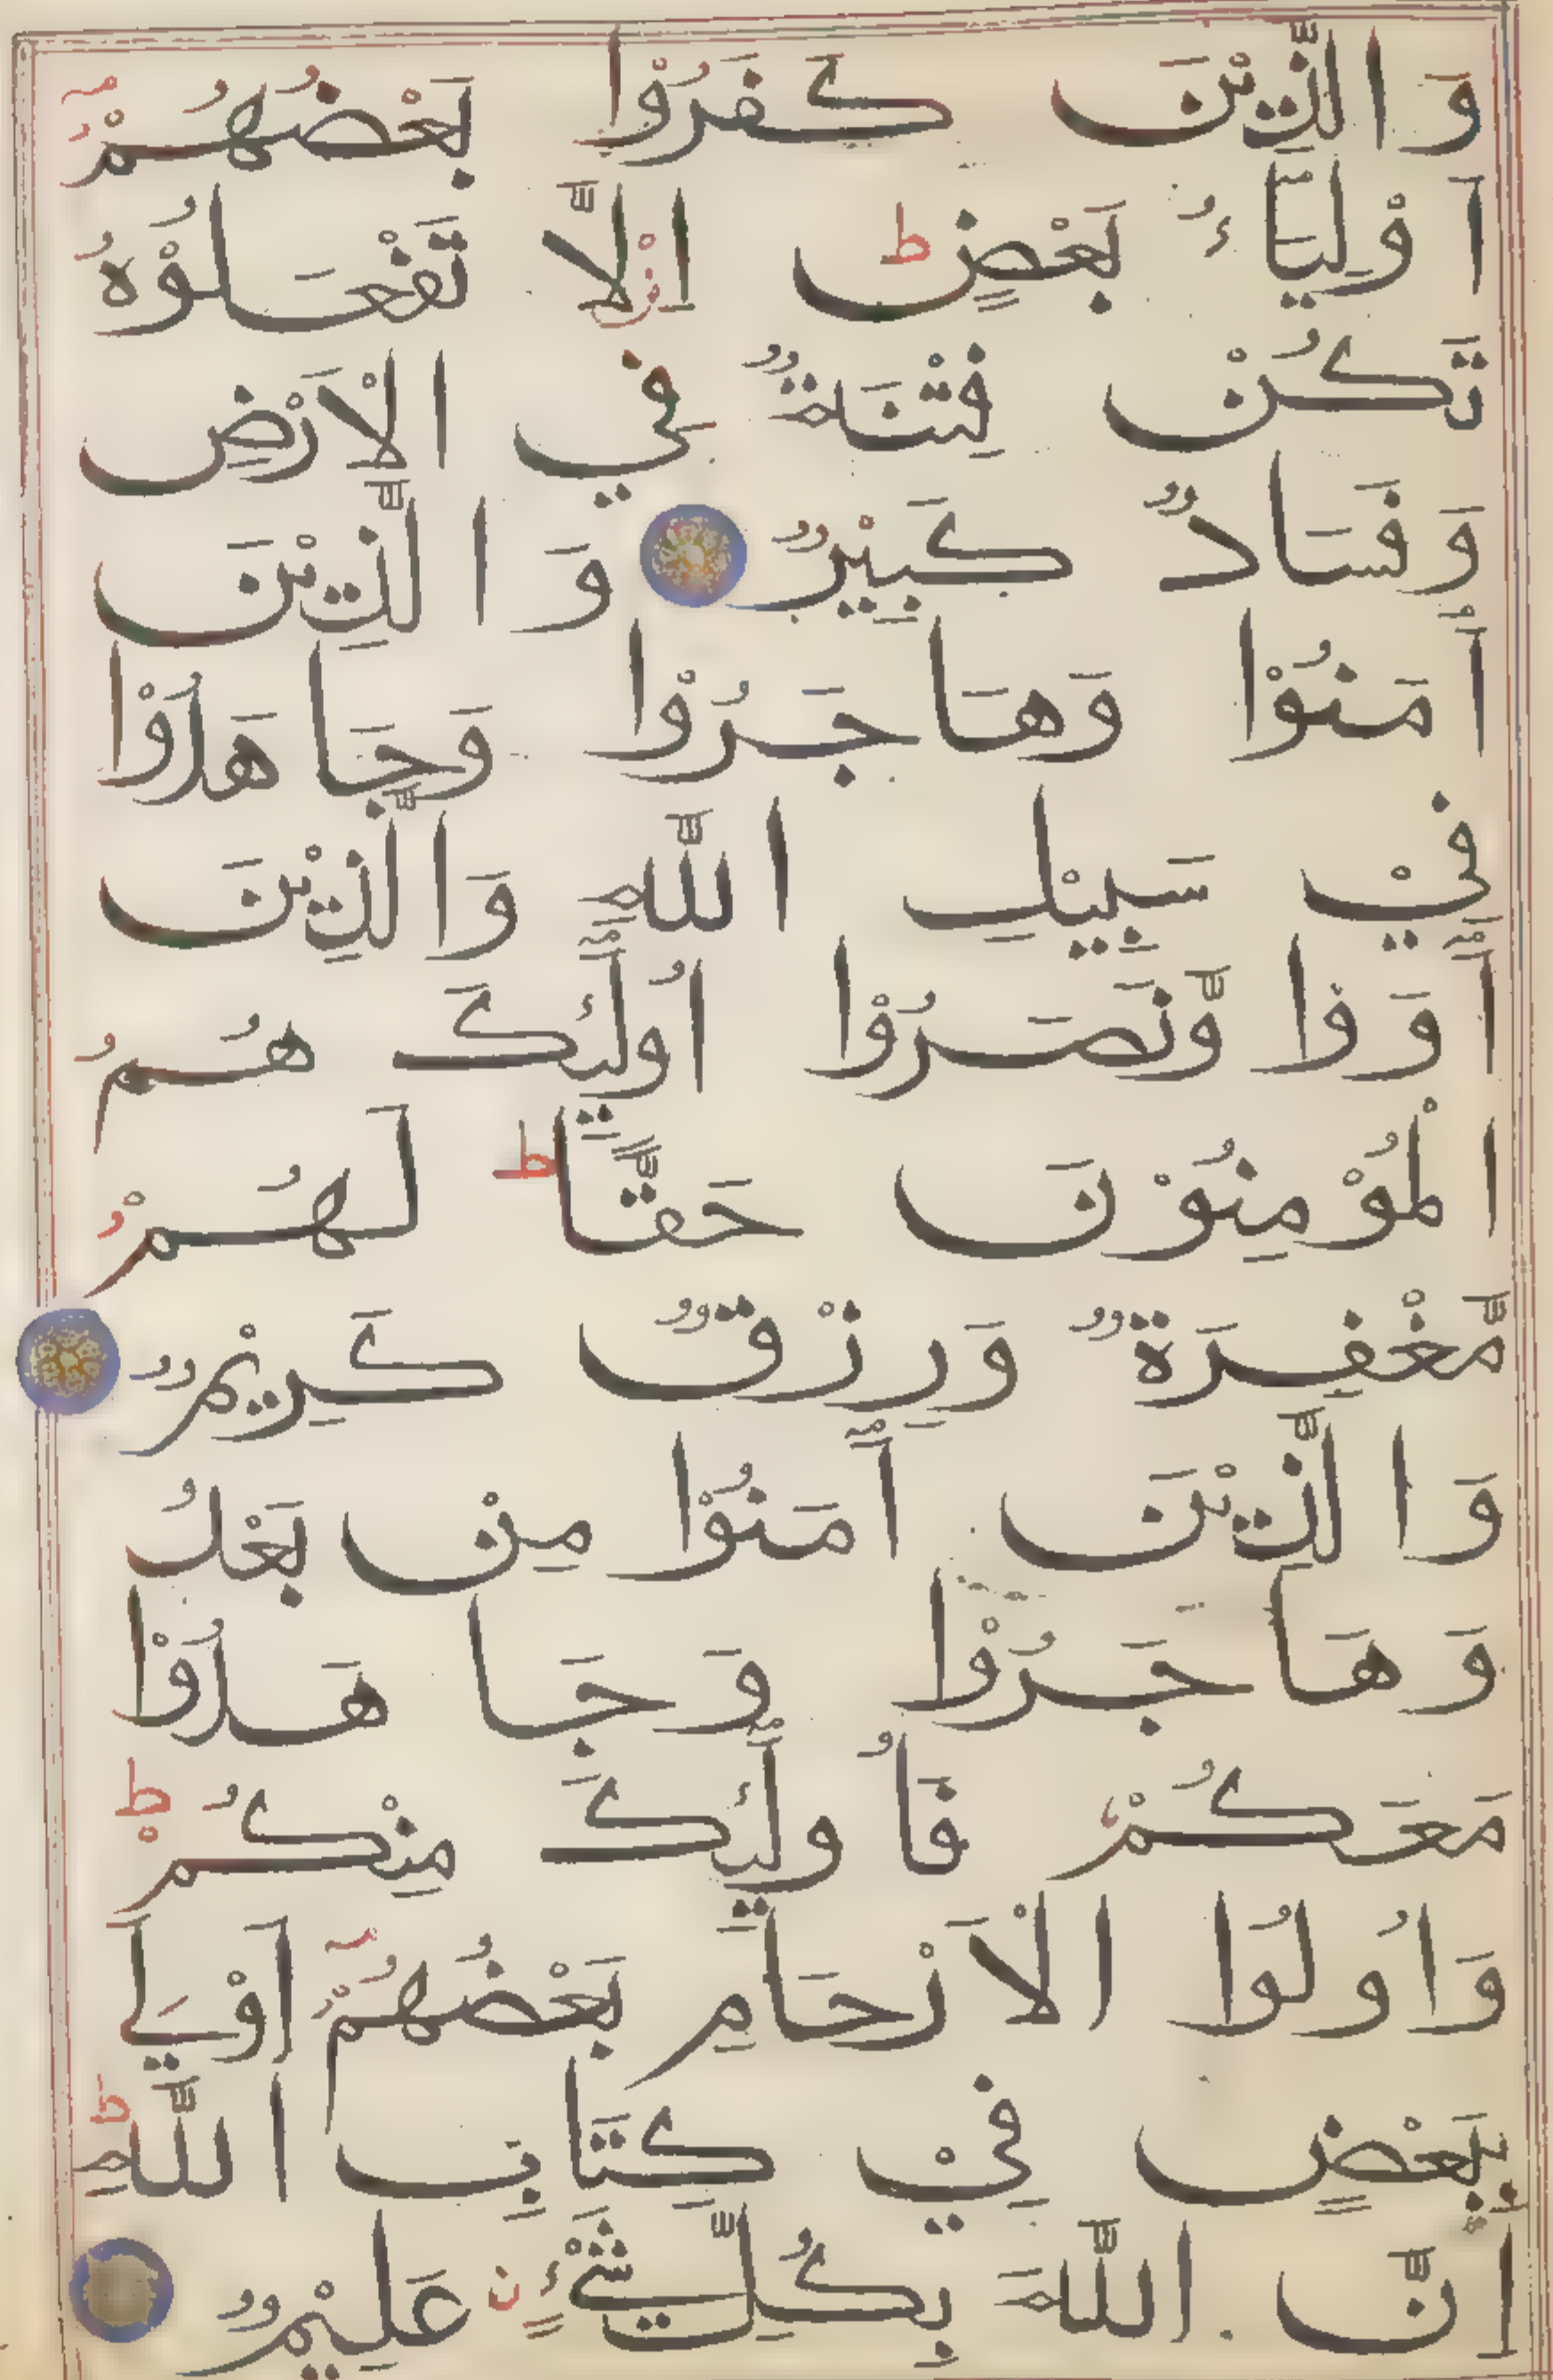 وَالَّذِيْنَ كَفَرُوْا بَعْضُهُمْ
اَوْلِيَآءُ بَعْضٍ ط اِلَّا تَفْعَلُوْهُ
تَكُنْ فِتْنَةٌ فِي الْاَرْضِ
وَفَسَادٌ كَبِيْرٌ وَالَّذِيْنَ
اٰمَنُوْا وَهَاجَرُوْا وَجَاهَدُوْا
فِيْ سَبِيْلِ اللّٰهِ وَالَّذِيْنَ
اٰوَوْا وَّنَصَرُوْا اُولٰٓئِكَ هُمُ
الْمُؤْمِنُوْنَ حَقًّا ط لَهُمْ
مَّغْفِرَةٌ وَرِزْقٌ كَرِيْمٌ
وَالَّذِيْنَ اٰمَنُوْا مِنْ بَعْدُ
وَهَاجَرُوْا وَجَاهَدُوْا
مَعَكُمْ فَاُولٰٓئِكَ مِنْكُمْ ط
وَاُولُوا الْاَرْحَامِ بَعْضُهُمْ اَوْلٰى
بِبَعْضٍ فِيْ كِتَابِ اللّٰهِ ط
اِنَّ اللّٰهَ بِكُلِّ شَيْءٍ عَلِيْمٌ